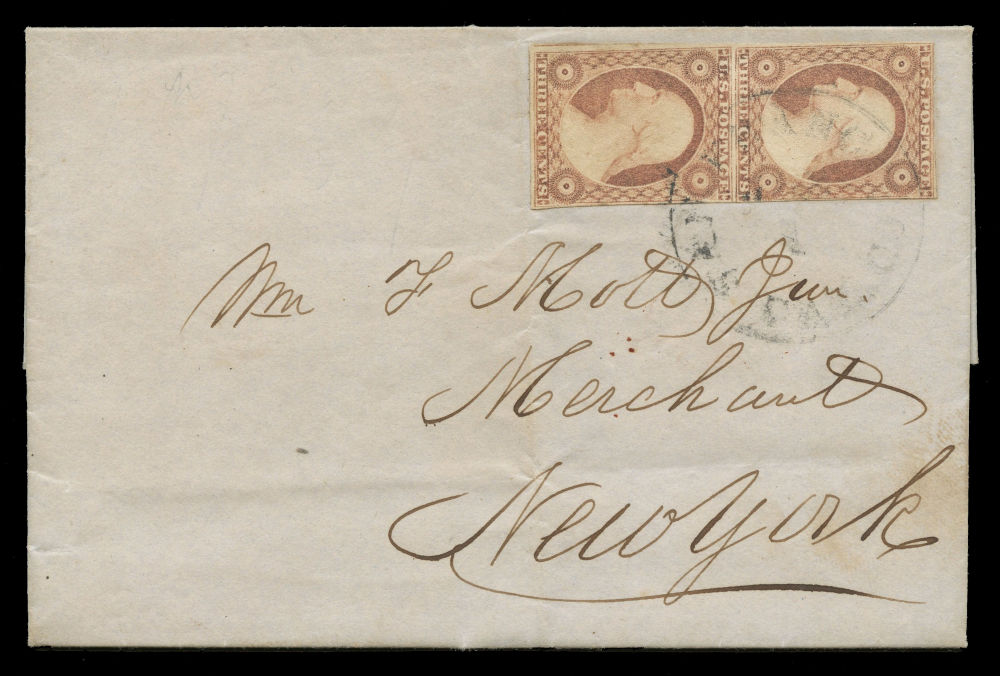 U.S. POSTAGE
THREE CENTS
U.S. POSTAGE
THREE CENTS
Wm F Mott Jun.
Merchant
New York